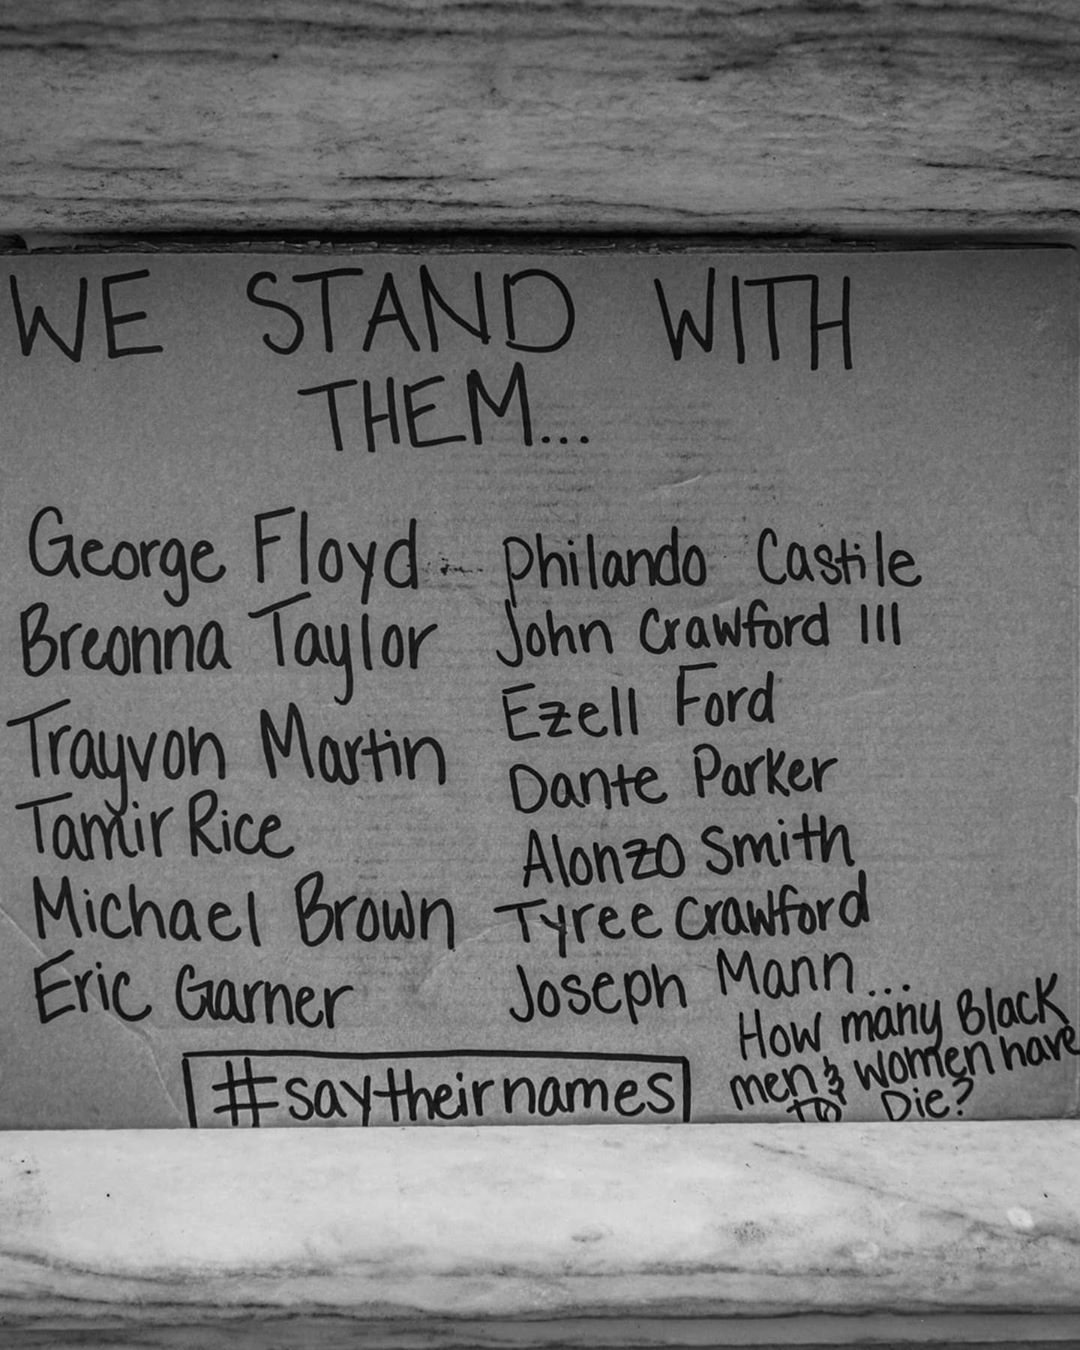 WE STAND WITH
THEM...
George Floyd
Breonna Taylor
Trayvon Martin
Tamir Rice
Michael Brown
Eric Garner
Philando Castile
John Crawford III
Ezell Ford
Dante Parker
Alonzo Smith
Tyree Crawford
Joseph Mann...
#saytheirnames
How many Black
men & women have
to Die?